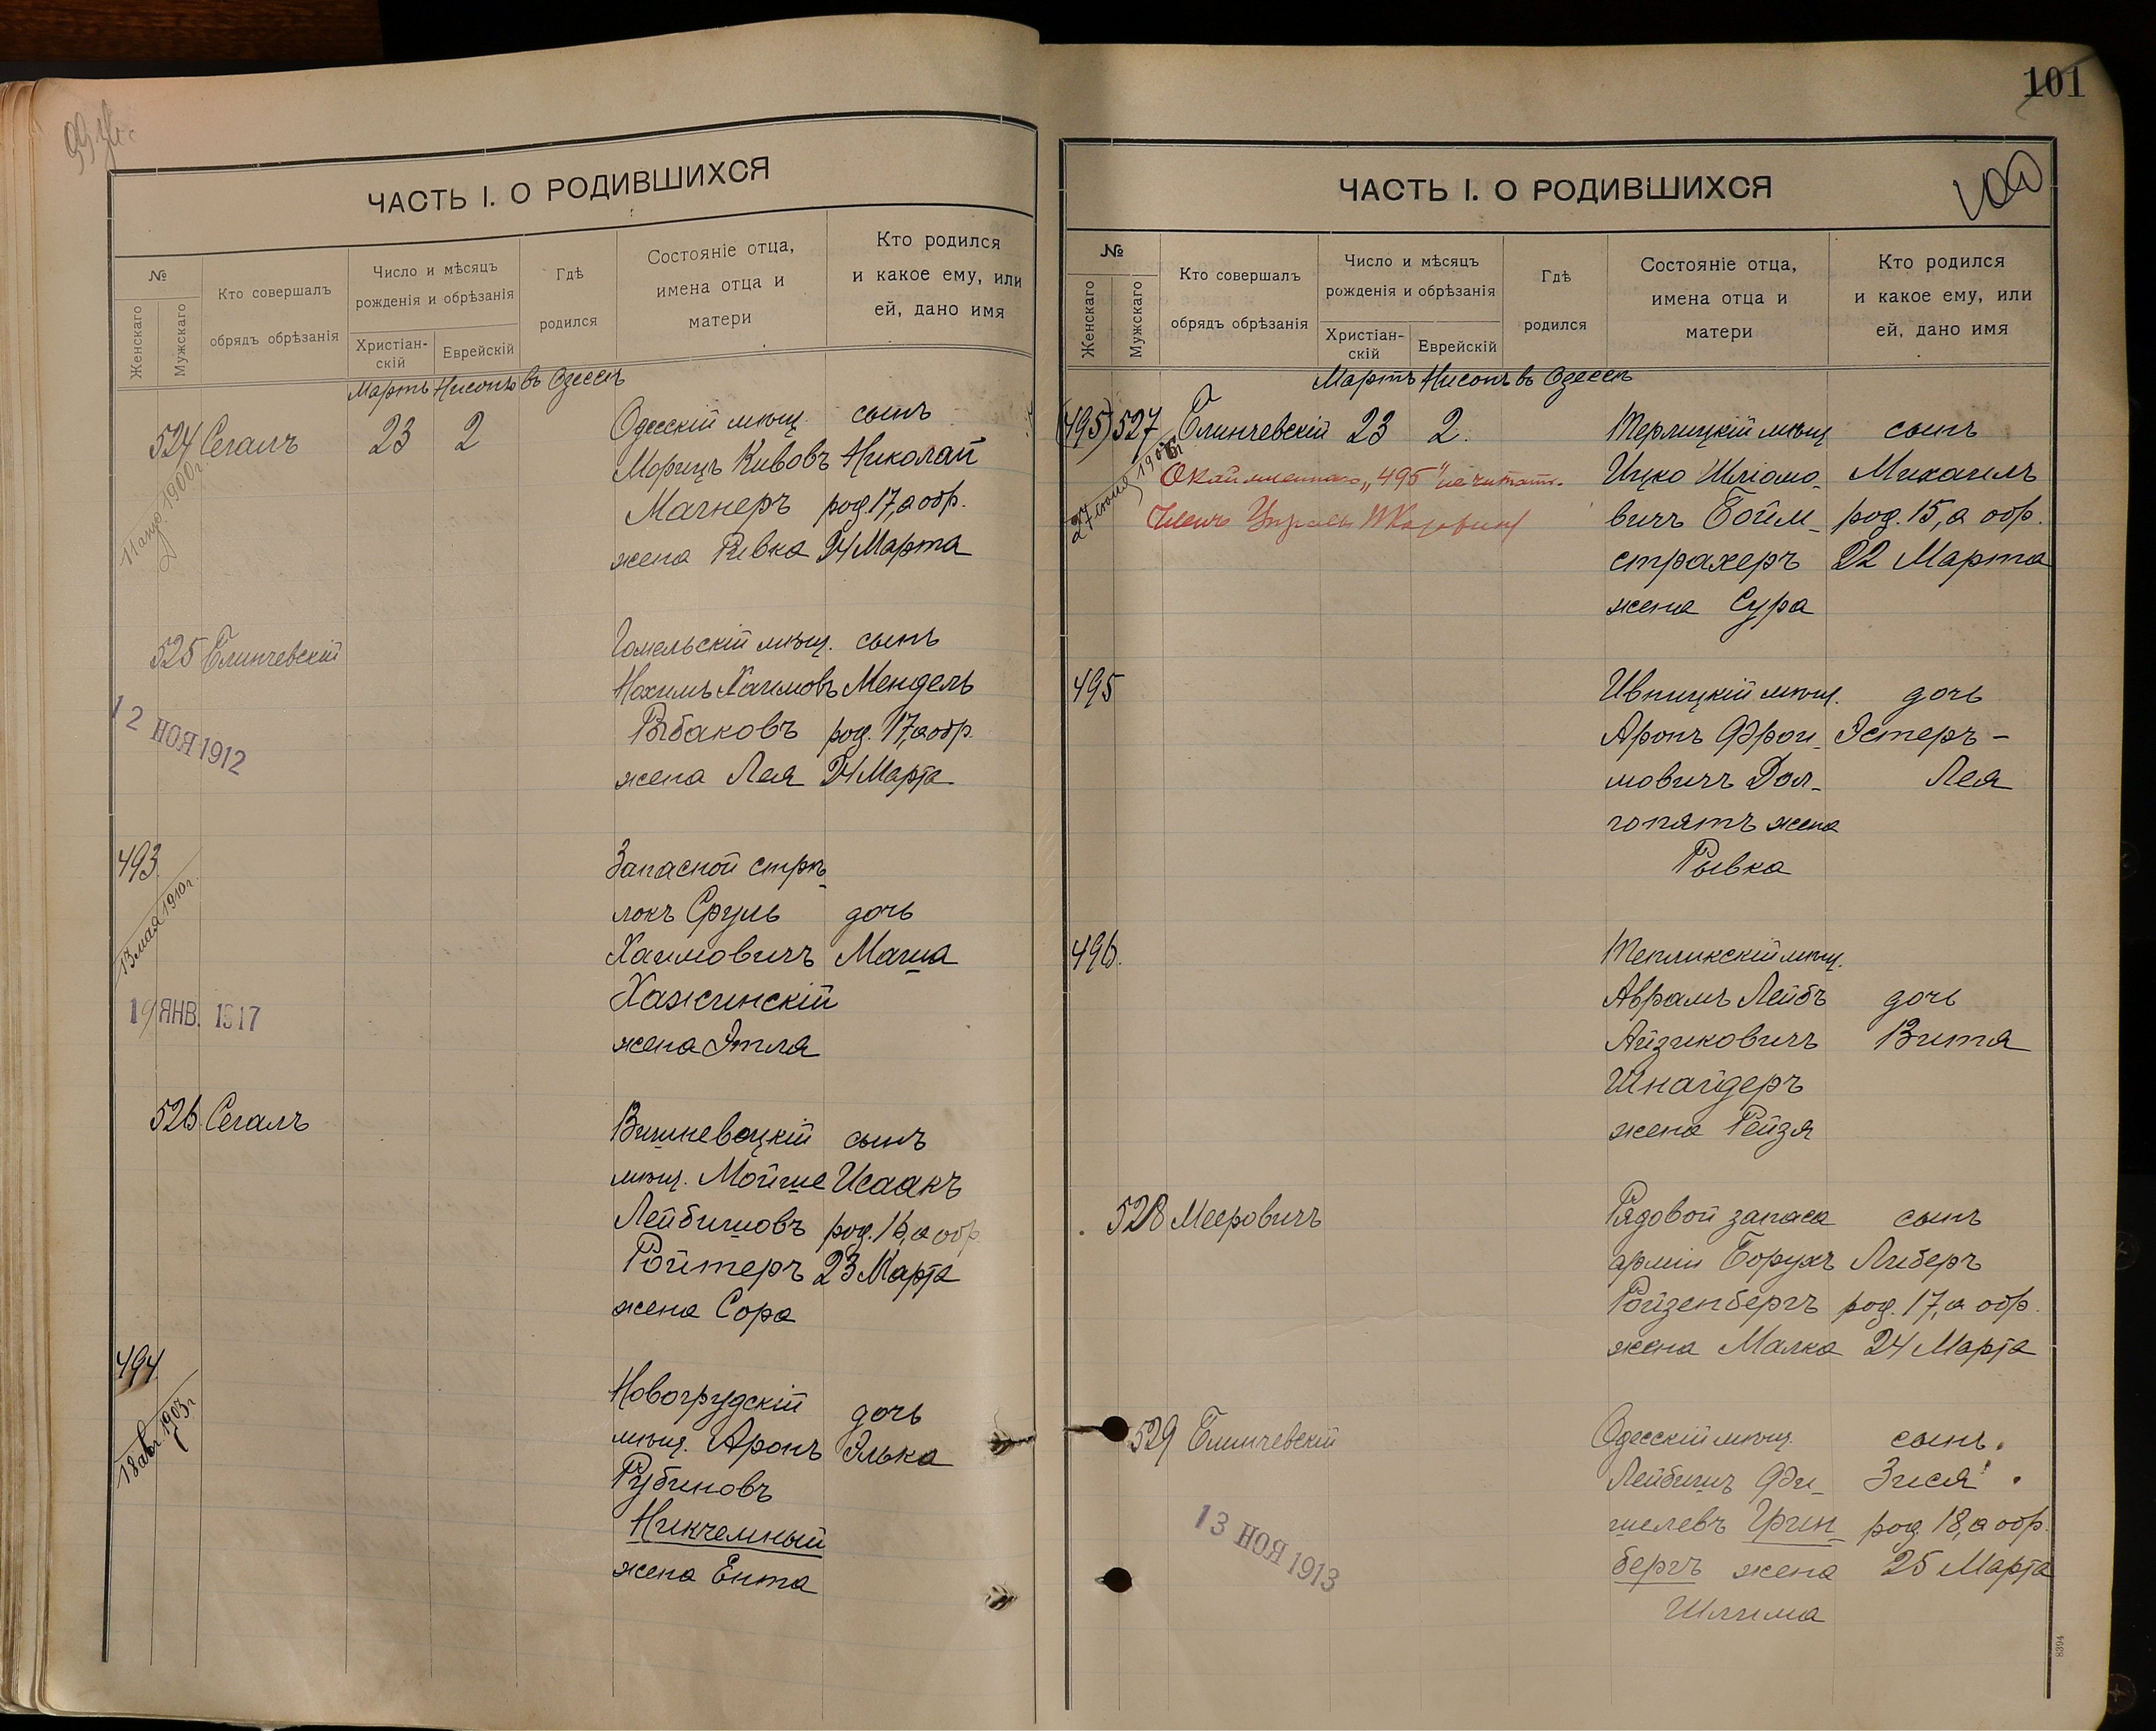 ЧАСТЬ I. О РОДИВШИХСЯ
№
Женскаго
Мужскаго
Кто совершалъ
обрядъ обрѣзанія
Число и мѣсяцъ
рожденія и обрѣзанія
Христіан-
скій
Еврейскій
Гдѣ
родился
Состояніе отца,
имена отца и
матери
Кто родился
и какое ему, или
ей, дано имя
Мартъ Нисонъ въ Одессѣ
524 Сегалъ 23 2 Одесскій мѣщ. сынъ
Морицъ Кивовъ Николай
Магнеръ род. 17, а обр.
жена Ривка 24 Марта
1900 г.
525 Блинчевскій Гомельскій мѣщ. сынъ
Нохимъ Хаимовъ Мендель
Рыбаковъ род. 17, а обр.
жена Лея 24 Марта
12 НОЯ 1912
493 Запасной стрѣ-
локъ Сруль дочь
Хаимовичъ Маша
Хажинскій
жена Этля
13 мая 1910 г.
19 ЯНВ. 1917
526 Сегалъ Вишневецкій сынъ
мѣщ. Мойше Исаакъ
Лейбишовъ род. 16, а обр.
Ройтеръ 23 Марта
жена Сора
494 Новогрудскій дочь
мѣщ. Аронъ Элька
Рубиновъ
Никчемный
жена Ента
18 авг. 1903 г.
101
100
ЧАСТЬ I. О РОДИВШИХСЯ
№
Женскаго
Мужскаго
Кто совершалъ
обрядъ обрѣзанія
Число и мѣсяцъ
рожденія и обрѣзанія
Христіан-
скій
Еврейскій
Гдѣ
родился
Состояніе отца,
имена отца и
матери
Кто родился
и какое ему, или
ей, дано имя
Мартъ Нисонъ въ Одессѣ
(495) 527 Блинчевскій 23 2. Терлицкій мѣщ. сынъ
Ицко Шліомо- Михаилъ
вичъ Бойм- род. 15, а обр.
страхеръ 22 Марта
жена Сура
Окаймленнаго "495" не читать.
Членъ Управы
495 Ивницкій мѣщ. дочь
Аронъ Фрои- Эстеръ-
мовичъ Дол- Лея
гопятъ жена
Рывка
496. Тепликскій мѣщ.
Аврамъ Лейбъ дочь
Айзиковичъ Витя
Шнайдеръ
жена Рейзя
528 Мееровичъ Рядовой запаса сынъ
арміи Борухъ Либеръ
Ройзенбергъ род. 17, а обр.
жена Малка 24 Марта
529 Блинчевскій Одесскій мѣщ. сынъ
Лейбишъ Фи- Зися
шелевъ Грин- род. 18, а обр.
бергъ жена 25 Марта
Шлима
13 НОЯ 1913
8394